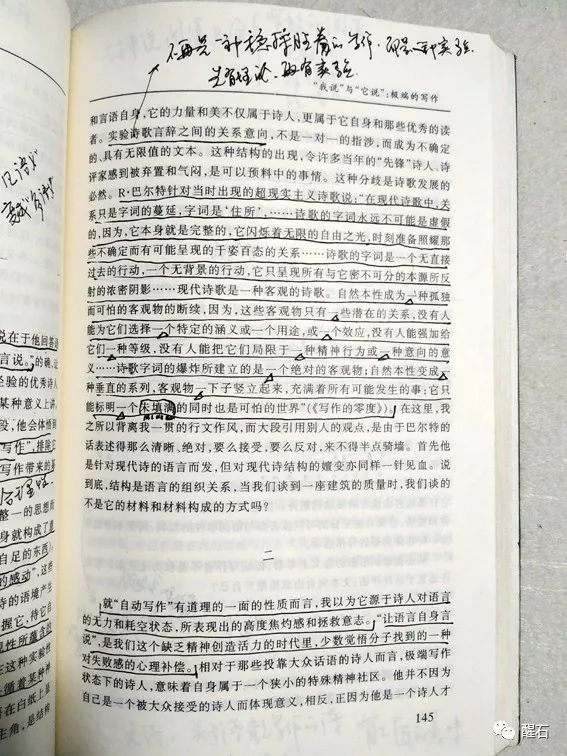 先有理论,再有实验
“我说”与“它说”:极端的写作
和言语自身,它的力量和美不仅属于诗人,更属于它自身和那些优秀的读
者。实验诗歌言辞之间的关系意向,不是一对一的指涉,而成为不确定
的、具有无限值的文本。这种结构的出现,令许多当年的“先锋”诗人、诗
评家感到被弃置和气闷,是可以预料中的事情。这种分歧是诗歌发展的
必然。R·巴尔特针对当时出现的超现实主义诗歌说:“在现代诗歌中,关
系只是字词的蔓延,字词是‘住所’,……诗歌的字词永远不可能是虚假
的,因为,它本身就是完整的,它闪烁着无限的自由之光,时刻准备照耀那
些不确定而有可能呈现的千姿百态的关系……诗歌的字词是一个无直接
过去的行动,一个无背景的行动,它只呈现所有与它密不可分的本源所反
射的浓密阴影……现代诗歌是一种客观的诗歌。自然本性成为一种孤独
而可怕的客观物的断续,因为,这些客观物只有一些潜在的关系,没有人
能为它们选择一个特定的涵义或一个用途,或一个效应,没有人能强加给
它们一种等级,没有人能把它们局限于一种精神行为或一种意向的意
义……诗歌字词的爆炸所建立的是一个绝对的客观物;自然本性变成一
种垂直的系列,客观物一下子竖立起来,充满着所有可能发生的事;它只
能标明一个未填满的同时也是可怕的世界”(《写作的零度》)。在这里,我
之所以背离我一贯的行文作风,而大段引用别人的观点,是由于巴尔特的
话表述得那么清晰、绝对,要么接受,要么反对,来不得半点骑墙。首先他
是针对现代诗的语言而发,但对现代诗结构的嬗变亦同样一针见血。说
到底,结构是语言的组织关系,当我们谈到一座建筑的质量时,我们谈的
不是它的材料和材料构成的方式吗?
二
就“自动写作”有道理的一面的性质而言,我以为它源于诗人对语言
的无力和耗空状态,所表现出的高度焦灼感和拯救意志。“让语言自身言
说”,是我们这个缺乏精神创造活力的时代里,少数觉悟分子找到的一种
对失败感的心理补偿。相对于那些投靠大众话语的诗人而言,极端写作
状态下的诗人,意味着自身属于一个狭小的特殊精神社区。他并不因为
自己是一个被大众接受的诗人而体现意义,相反,正因为他是一个诗人才
145
说在于他回答语
言说。”的确,让
经验的优秀诗人
某种意义上讲,
段,他会体悟到
写作”,排除它
写作带来的某
整一的思想而
身就构成了意
自足的东西)
的感动”,这些
诗的语境产生
握它,待它自
在这种实验性
循着某种神
在白纸上显
主角,是结构
醒石